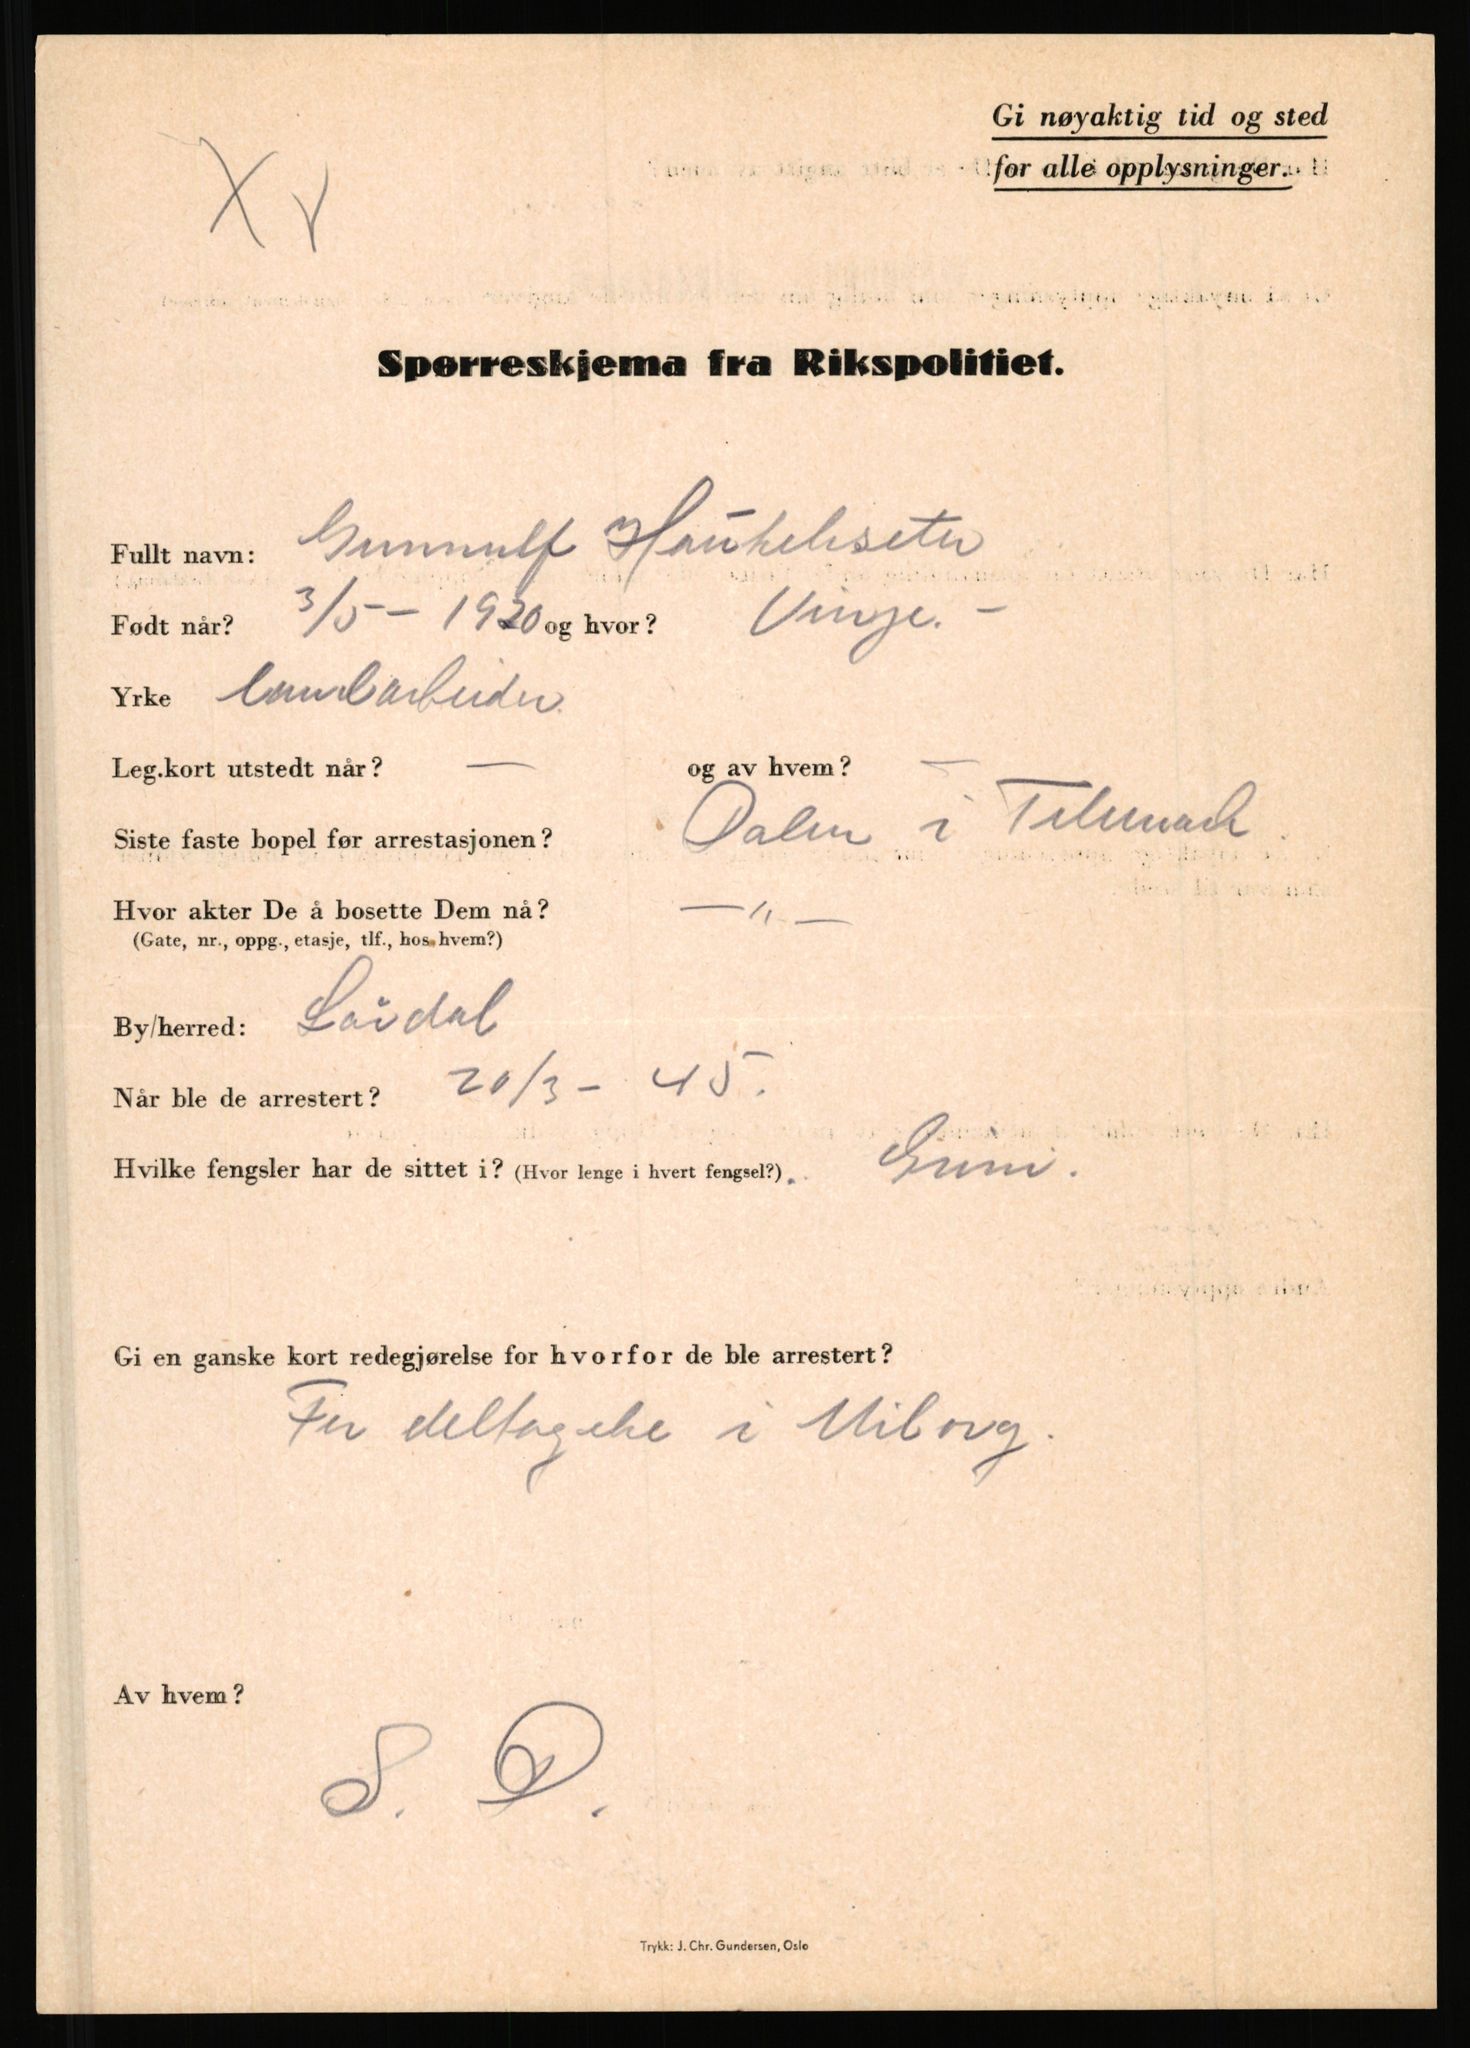 Gi nøyaktig tid og sted
for alle opplysninger.
X V
Spørreskjema fra Rikspolitiet.
Fullt navn: Gunnulf Haukeliseter
Født når? 3/5 - 1920 og hvor? Vinje. -
Yrke landarbeider.
Leg.kort utstedt når? — og av hvem? —
Siste faste bopel før arrestasjonen? Dalen i Telemark.
Hvor akter De å bosette Dem nå? — " —
(Gate, nr., oppg., etasje, tlf., hos hvem?)
By/herred: Lårdal
Når ble de arrestert? 20/3 - 45.
Hvilke fengsler har de sittet i? (Hvor lenge i hvert fengsel?). Grini.
Gi en ganske kort redegjørelse for hvorfor de ble arrestert?
For deltagelse i Milorg.
Av hvem?
S. D.
Trykk: J. Chr. Gundersen, Oslo